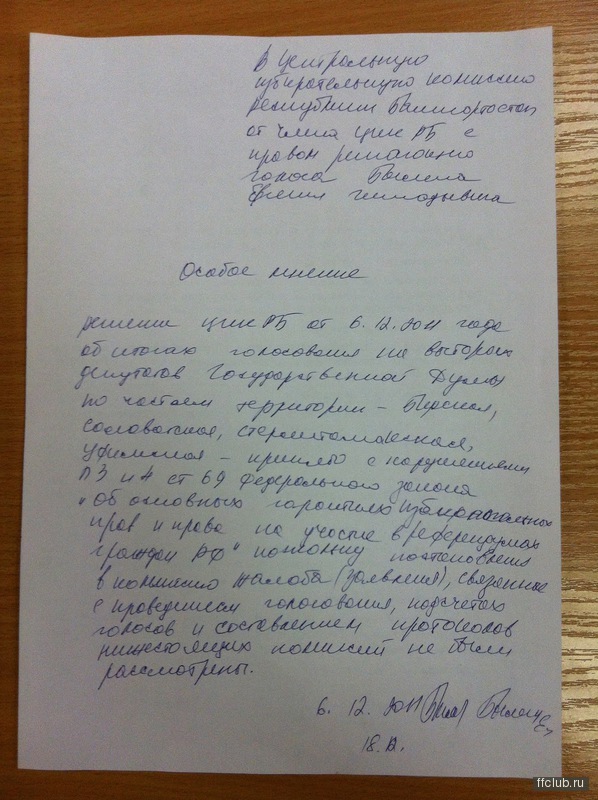 В Центральную
избирательную комиссию
Республики Башкортостан
от члена ЦИК РБ с
правом решающего
голоса
Особое мнение
Решение ЦИК РБ от 6.12.2011 года
об итогах голосования на выборах
депутатов Государственной Думы
по частям территории - Бирская,
Салаватская, Стерлитамакская,
Уфимская - принято с нарушениями
п3 и 4 ст 69 Федерального закона
"Об основных гарантиях избирательных
прав и права на участие в референдумах
граждан РФ" поскольку
в комиссию жалоба (заявления), связанные
с проведением голосования, подсчетах
голосов и составлением протоколов
нижестоящих комиссий не были
рассмотрены.
6. 12. 2011
ffclub.ru